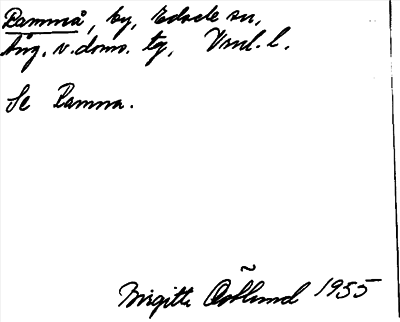 Pammå, by, Edsele sn,
Ång. v. doms. tg, Vnl. l.
Se Pamna.
Birgitte Osslund 1955